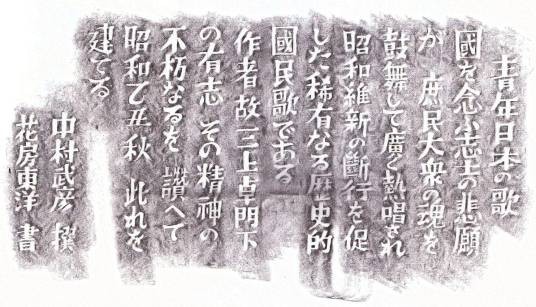 青年日本の歌
國を念ふ志士の悲願
が 庶民大衆の魂を
鼓舞して廣く熱唱され
昭和維新の斷行を促
した稀有なる歴史的
國民歌である
作者故三上卓門下
の有志 その精神の
不朽なるを讃へて
昭和乙丑秋 此れを
建てる
中村武彦 撰
花房東洋 書